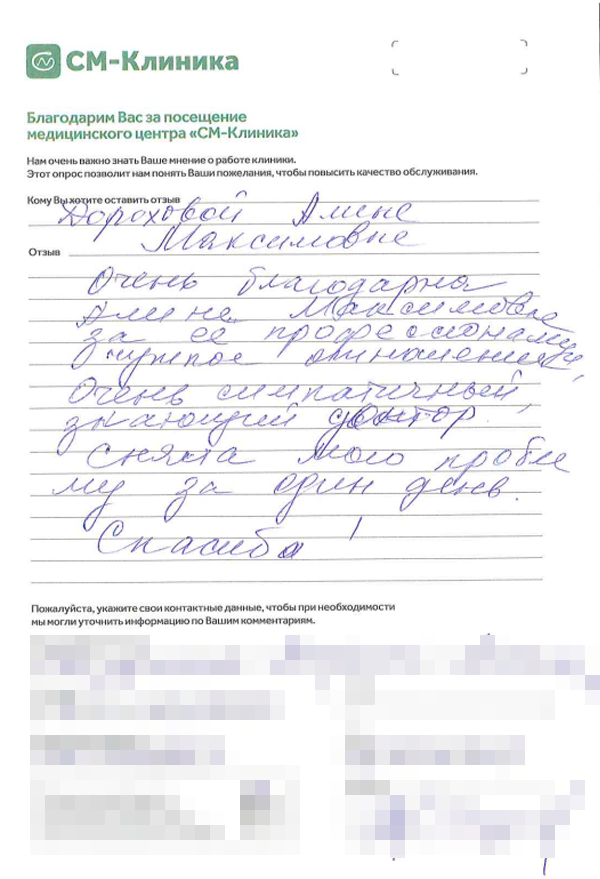 СМ-Клиника
Благодарим Вас за посещение
медицинского центра «СМ-Клиника»
Нам очень важно знать Ваше мнение о работе клиники.
Этот опрос позволит нам понять Ваши пожелания, чтобы повысить качество обслуживания.
Кому Вы хотите оставить отзыв
Дороховой Алине
Максимовне
Отзыв
Очень благодарна
Алине Максимовне
за её профессионализм,
Очень симпатичный,
знающий доктор.
Сняла мою пробле
му за один день.
Спасибо!
Пожалуйста, укажите свои контактные данные, чтобы при необходимости
мы могли уточнить информацию по Вашим комментариям.